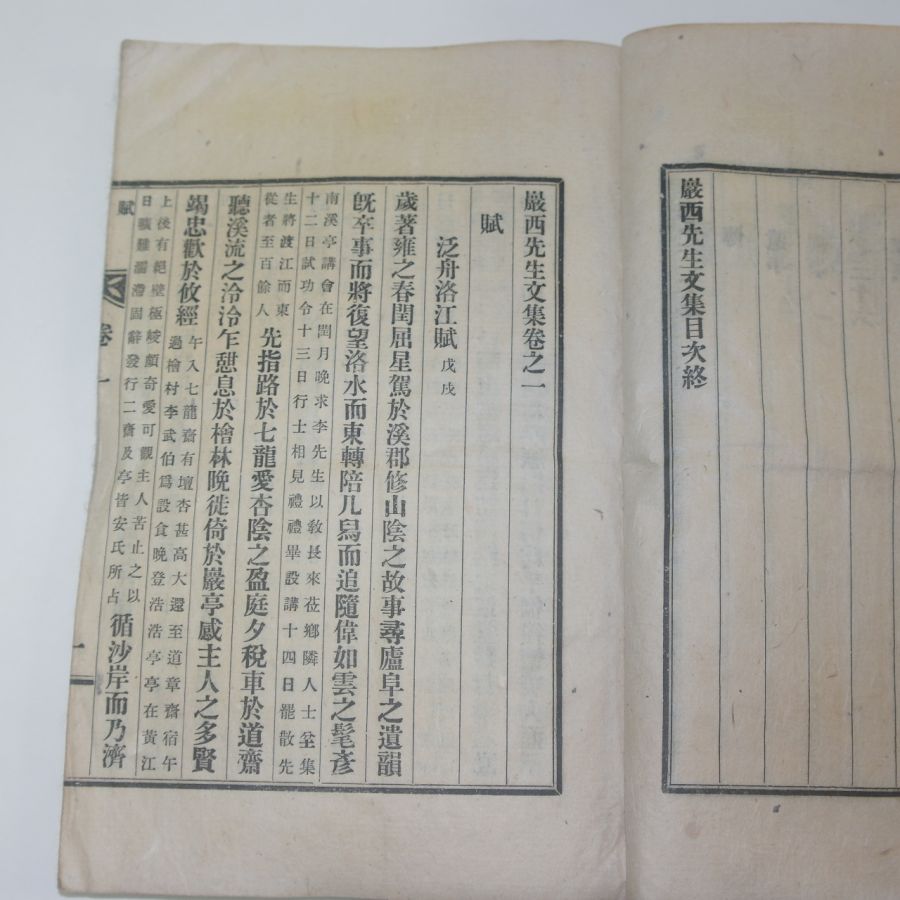 巖西先生文集目次終
巖西先生文集卷之一
賦
泛舟洛江賦 戊戌
歲著雍之春閏屈星駕於溪郡修山陰之故事尋廬阜之遺韻
旣卒事而將復望洛水而東轉陪几舃而追隨偉如雲之髦彥
南溪亭講會在閏月晚求李先生以敎長來莅鄕隣人士坌集
十二日試功令十三日行士相見禮禮畢設講十四日罷散先
生將渡江而東
從者至百餘人
先指路於七龍愛杏陰之盈庭夕稅車於道齋
聽溪流之泠泠乍憩息於檜林晚徙倚於巖亭感主人之多賢
竭忠歡於攸經
午入七龍齋有壇杏甚高大還至道章齋宿午
過檜村李武伯爲設食晚登浩浩亭亭在黃江
上後有絕壁極奇愛可觀主人苦止之以
日雖濡滯固辭發行二齋及亭皆安氏所占
循沙岸而乃濟
賦
卷一
一